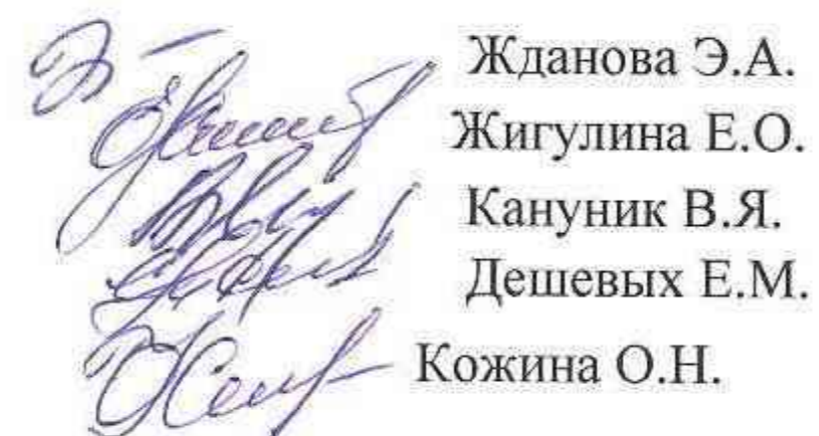 Жданова Э.А.
Жигулина Е.О.
Кануник В.Я.
Дешевых Е.М.
Кожина О.Н.